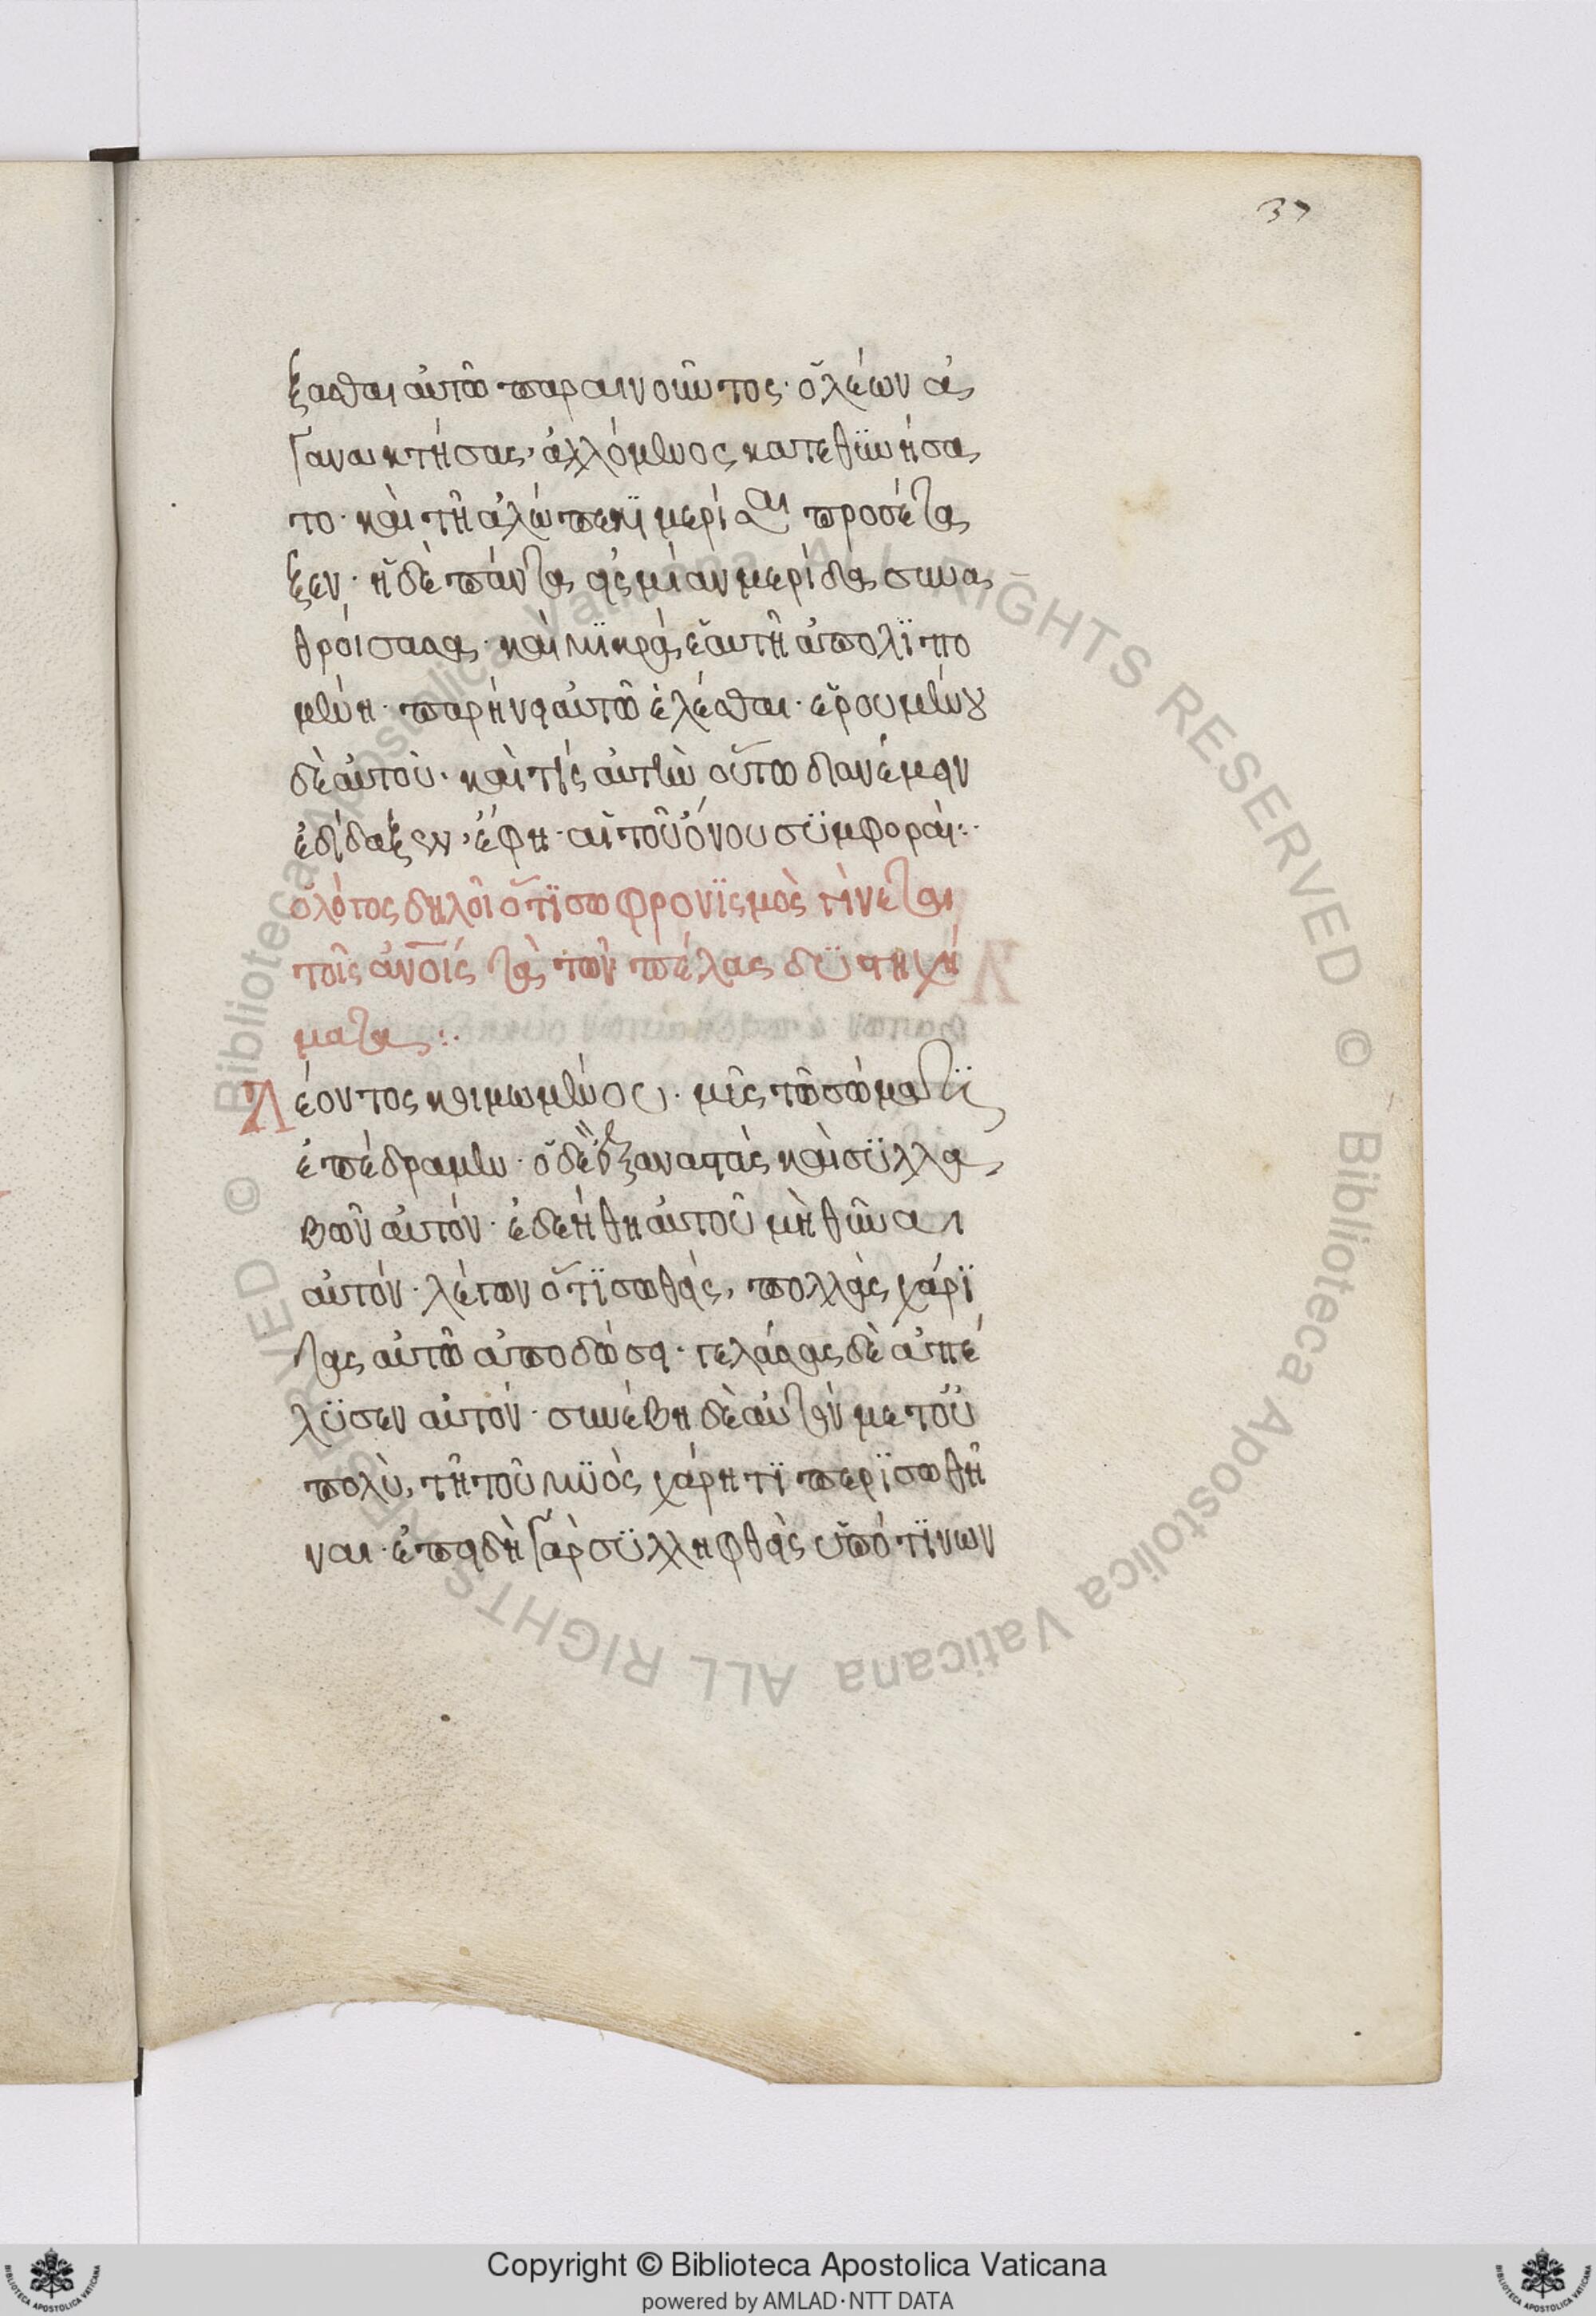 37
ξασθαι αὐτῶ παραινοῦντος· ὁ λέων ἀ
γανακτήσας, ἁλλόμενος κατεθϋνήσα
το· καὶ τῆ ἀλώπεκϊ μερίσαι προσέτα
ξεν· ἡ δὲ πάντα εἰς μίαν μερίδα συνα
θροίσασα· καὶ μϊκρὰ ἑαυτῆ ἀπολϊπο
μένη· παρήνει αὐτῶ ἑλέσθαι· ἐρουμένου
δὲ αὐτοῦ· καὶ τίς αὐτὴν οὕτω διανέμειν
ἐδίδαξεν, ἔφη· αἱ τοῦ ὄνου σϋμφοραί:·
ὁ λόγος δηλοῖ ὅτϊ σωφρονϊσμὸς γίνεται
τοῖς ἀνοις τὰ τῶν πέλας δϋστηχή
ματα:·
Λέοντος κοιμωμένου· μῦς τῶ σώματϊ
ἐπέδραμεν· ὁ δὲ ἐξαναστὰς καὶ σϋλλα
βὼν αὐτόν· ἐδεήθη αὐτοῦ μὴ θῦναι
αὐτόν· λέγων ὅτϊ σωθεὶς, πολλὰς χάρϊ
τας αὐτῶ ἀποδώσει· γελάσας δὲ ἀπέ
λϋσεν αὐτόν· συνέβη δὲ αὐτὸν μετ οὐ
πολὺ, τῆ τοῦ μϋὸς χάρητϊ περϊσωθῆ
ναι· ἐπειδὴ γὰρ σϋλληφθεὶς ὑπό τϊνων
Copyright © Biblioteca Apostolica Vaticana
powered by AMLAD·NTT DATA